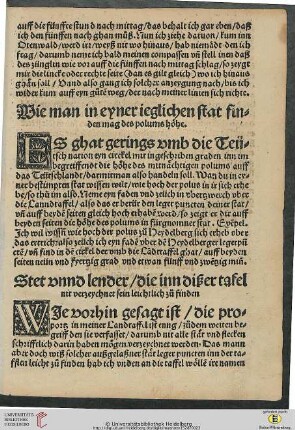 auff die fünffte stund nach mittag / das behalt ich gar eben / daß
ich den fünffen nach ghan müß. Nun ich ziehe daruon / kum inn
Otenwald / werd irr / weyß nit wo hinaus / hab niemādt den ich
frag / darumb nem̄e ich bald meinen compassen vn̄ stell in ein daß
das zünglin wie vor auff die fünffen nach mittag schlag / so zeygt
mir die linck oder rechte seite (dan es gilt gleich) wo ich hinaus
ghan soll / Vnnd also gang ich solcher anzeygung nach / biß ich
wider kum auff eyn güte weg / der nach meiner linien sich richtet.
Wie man in eyner ieglichen stat fin-
den mag des polums höhe.
ES ghat gerings vmb die Teüt-
schen nation eyn circkel mit ingeschriben graden im im
begreiffendt die höhe des mitnächtigen polums auff
das Teütschlandt / darmit man also handeln soll. Wan du in ey-
ner bestimpten stat wissen wilt / wie hoch der polus in ir sich erhe
be / so thü im also. Neme eyn faden vnd zeüch in überzwerch über
die Landtaffel / also das er berüre den leger puncten deiner stat /
vn̄ auff beyde seiten gleich hoch erhabē werd / so zeigt er dir auff
beyden seiten die höhe des polums in fürgnom̄ner stat. Exēpel.
Ich wol wissen wie hoch der polus zü Heydelberg sich erheb über
das ertrich / also zeüch ich eyn fadē über dē Heydelberger legerpū
ctē / vn̄ find in dē circkel der vmb die Lādtaffel ghat / auff beyden
seiten neün vnd viertzig grad vnd etwan fünff vnd zwētzig min.
Stet vnnd lender / die inn diser tafel
nit verzeychnet sein leichtlich zü finden
WIe vorhin gesagt ist / die pro-
portz in meiner Landtaffel ist enig / züdem weiten be-
griff den sie verfasset / darumb nit alle stät vnd flecken
schrifftlich darin haben mögen verzeychnet werden. Das man
aber doch wiß solcher außgelaßner stät leger puncten inn der ta-
flen leicht zü finden hab ich vnden an die taffel wöllē ire namen
UNIVERSITÄTS-
BIBLIOTHEK
HEIDELBERG
© Universitätsbibliothek Heidelberg